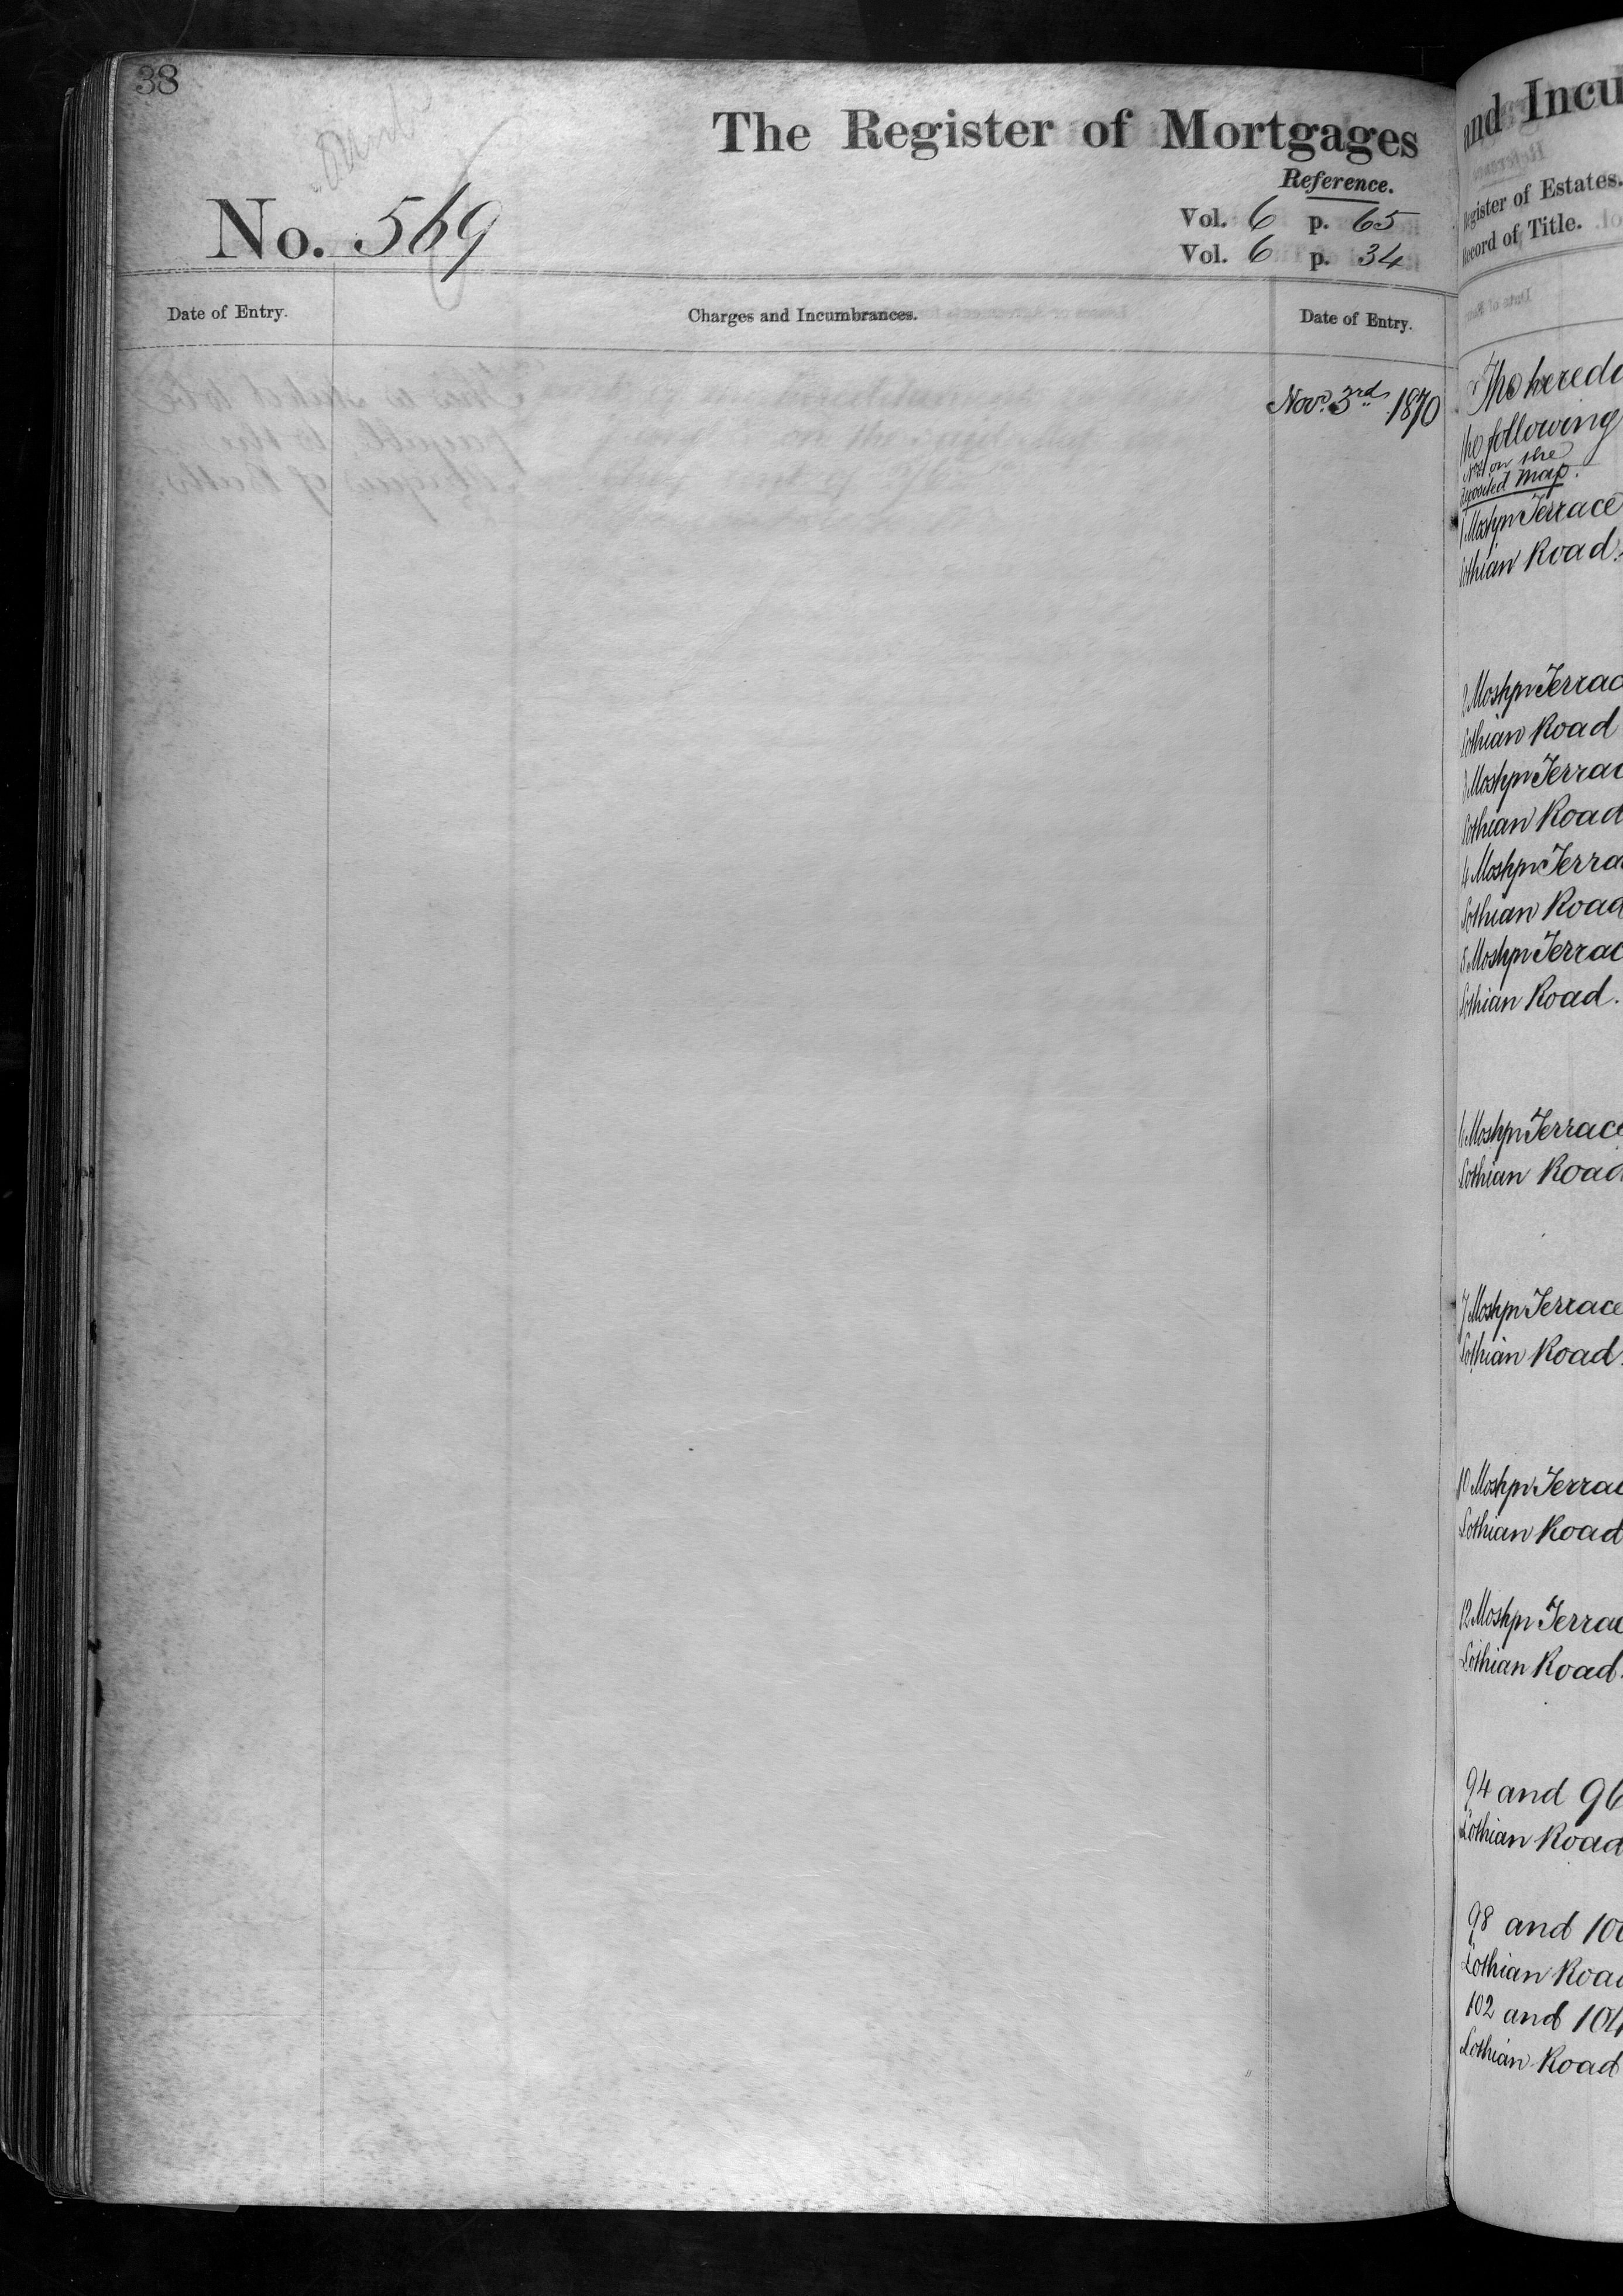 38
The Register of Mortgages
Reference.
No. 569
Vol. 6 p. 65
Vol. 6 p. 34
Date of Entry.
Charges and Incumbrances.
Date of Entry.
Novr. 3rd 1870
and Incu
Register of Estates.
Record of Title.
The hereda
the following
Nos. on the
deposited map.
1 Mostyn Terrace
Lothian Road.
2 Mostyn Terrac
Lothian Road
3 Mostyn Terrac
Lothian Road
4 Mostyn Terra
Lothian Road
5 Mostyn Terrac
Lothian Road.
6 Mostyn Terrace
Lothian Road
7 Mostyn Terrace
Lothian Road.
10 Mostyn Terrac
Lothian Road
12 Mostyn Terrac
Lothian Road.
94 and 96
Lothian Road
98 and 100
Lothian Road
102 and 104
Lothian Road